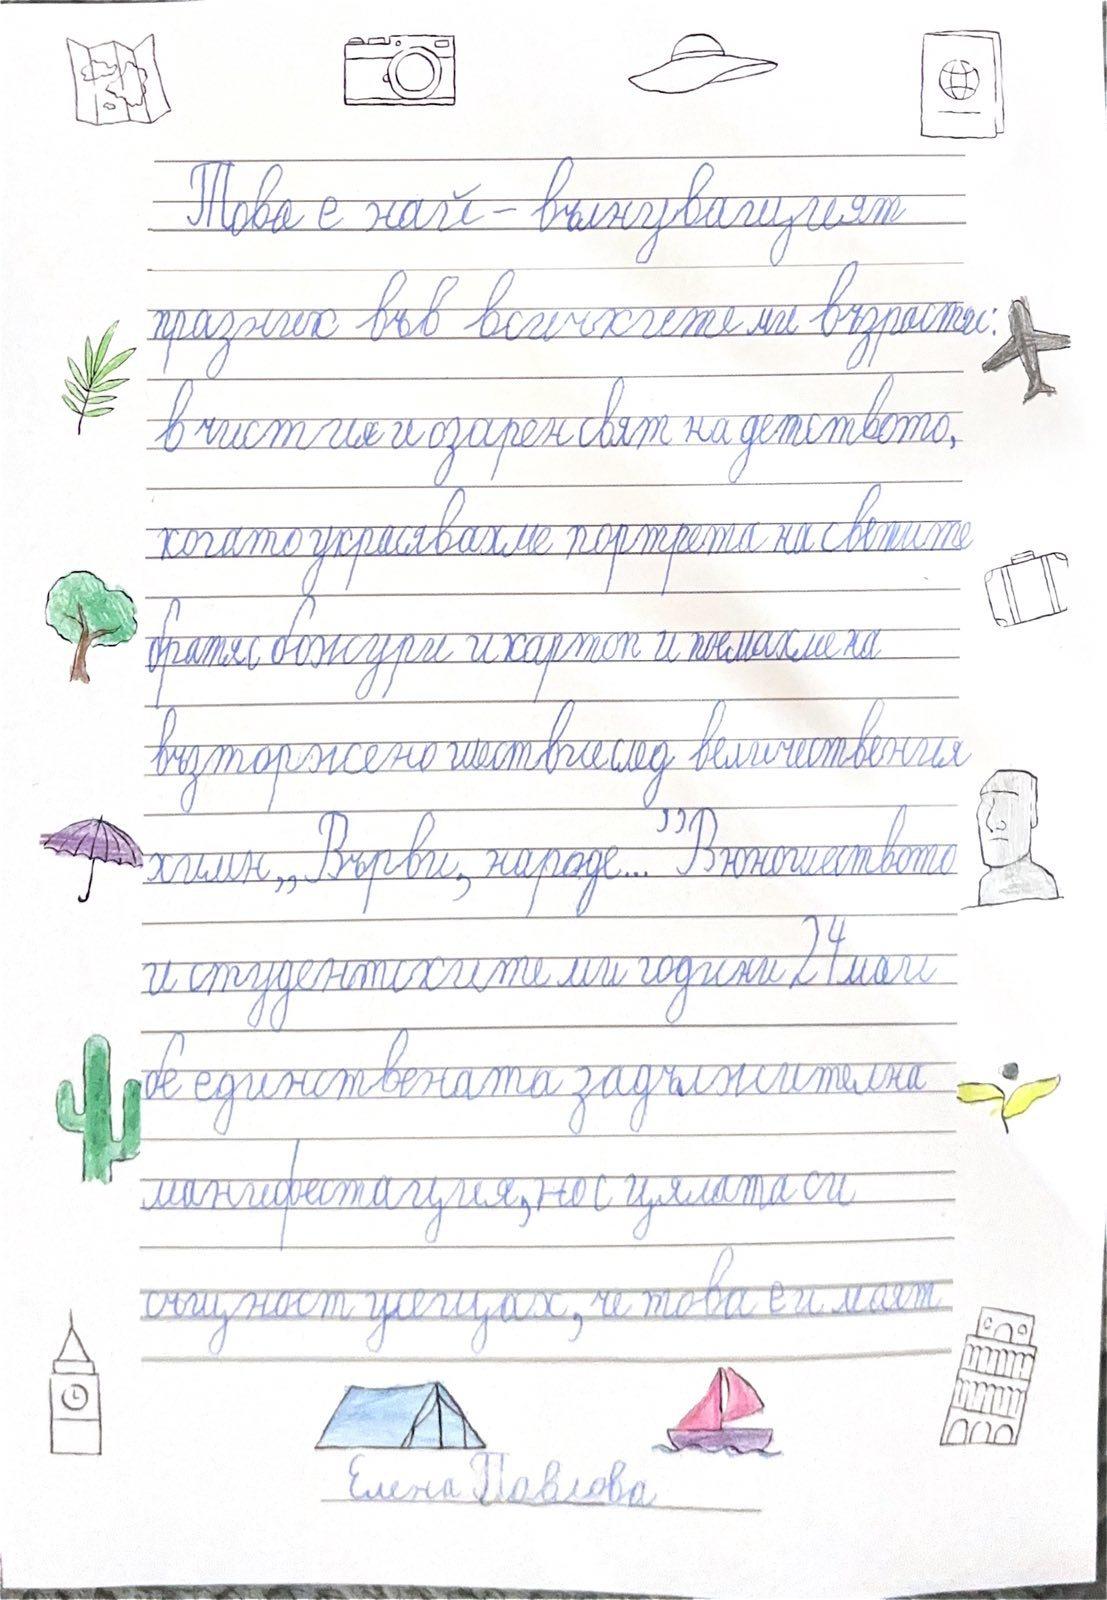 Това е най - вълнуващият
празник във всичките ми възрасти:
в чистия и озарен свят на детството,
когато украсявахме портрета на светите
братя с божури и картон и поемахме на
възторжено шествие след величествения
химн „Върви, народе..." В юношеството
и студентските ми години 24 май
бе единствената задължителна
манифестация, но с цялата си
същност усещах, че това е и моят
Елена Павлова